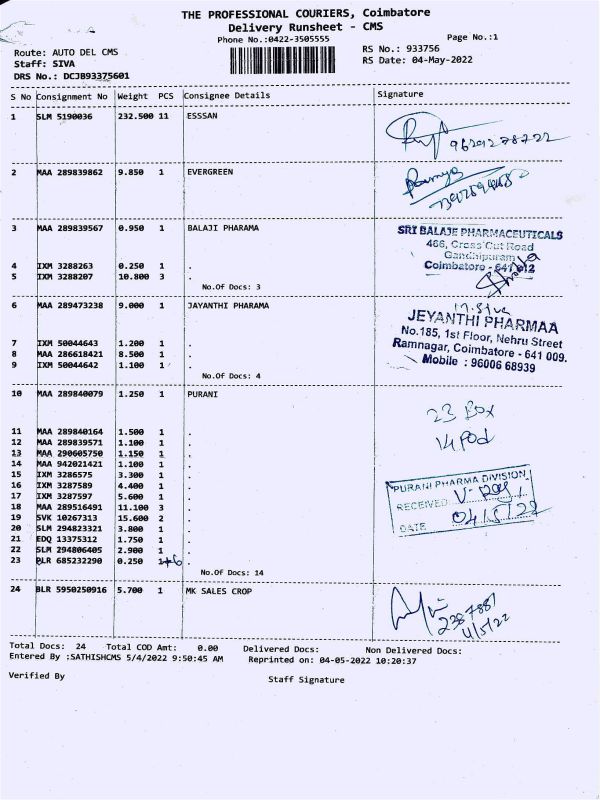 THE PROFESSIONAL COURIERS, Coimbatore
Delivery Runsheet - CMS
Phone No.:0422-3505555
Page No.:1
Route: AUTO DEL CMS
Staff: SIVA
DRS No.: DCJB93375601
RS No.: 933756
RS Date: 04-May-2022
S No Consignment No Weight PCS Consignee Details Signature
1 SLM 5190036 232.500 11 ESSSAN
2 MAA 289839862 9.850 1 EVERGREEN
3 MAA 289839567 0.950 1 BALAJI PHARAMA
SRI BALAJE PHARMACEUTICALS
466, Cross Cut Road
Gandhipuram
Coimbatore - 641 012
4 IXM 3288263 0.250 1 .
5 IXM 3288207 10.800 3 .
No.Of Docs: 3
6 MAA 289473238 9.000 1 JAYANTHI PHARAMA
JEYANTHI PHARMAA
No.185, 1st Floor, Nehru Street
Ramnagar, Coimbatore - 641 009.
Mobile : 96006 68939
7 IXM 50044643 1.200 1 .
8 MAA 286618421 8.500 1 .
9 IXM 50044642 1.100 1 .
No.Of Docs: 4
10 MAA 289840079 1.250 1 PURANI
23 Box
14 Pod
11 MAA 289840164 1.500 1 .
12 MAA 289839571 1.100 1 .
13 MAA 290605750 1.150 1 .
14 MAA 942021421 1.100 1 .
15 IXM 3286575 3.300 1 .
16 IXM 3287589 4.400 1 .
17 IXM 3287597 5.600 1 .
18 MAA 289516491 11.100 3 .
19 SVK 10267313 15.600 2 .
20 SLM 294823321 3.800 1 .
21 EDQ 13375312 1.750 1 .
22 SLM 294806405 2.900 1 .
23 BLR 685232290 0.250 1+6 .
No.Of Docs: 14
PURANI PHARMA DIVISION
RECEIVED
DATE 04/5/22
24 BLR 5950250916 5.700 1 MK SALES CROP
4/5/22
Total Docs: 24 Total COD Amt: 0.00 Delivered Docs: Non Delivered Docs:
Entered By :SATHISHCMS 5/4/2022 9:50:45 AM Reprinted on: 04-05-2022 10:20:37
Verified By
Staff Signature